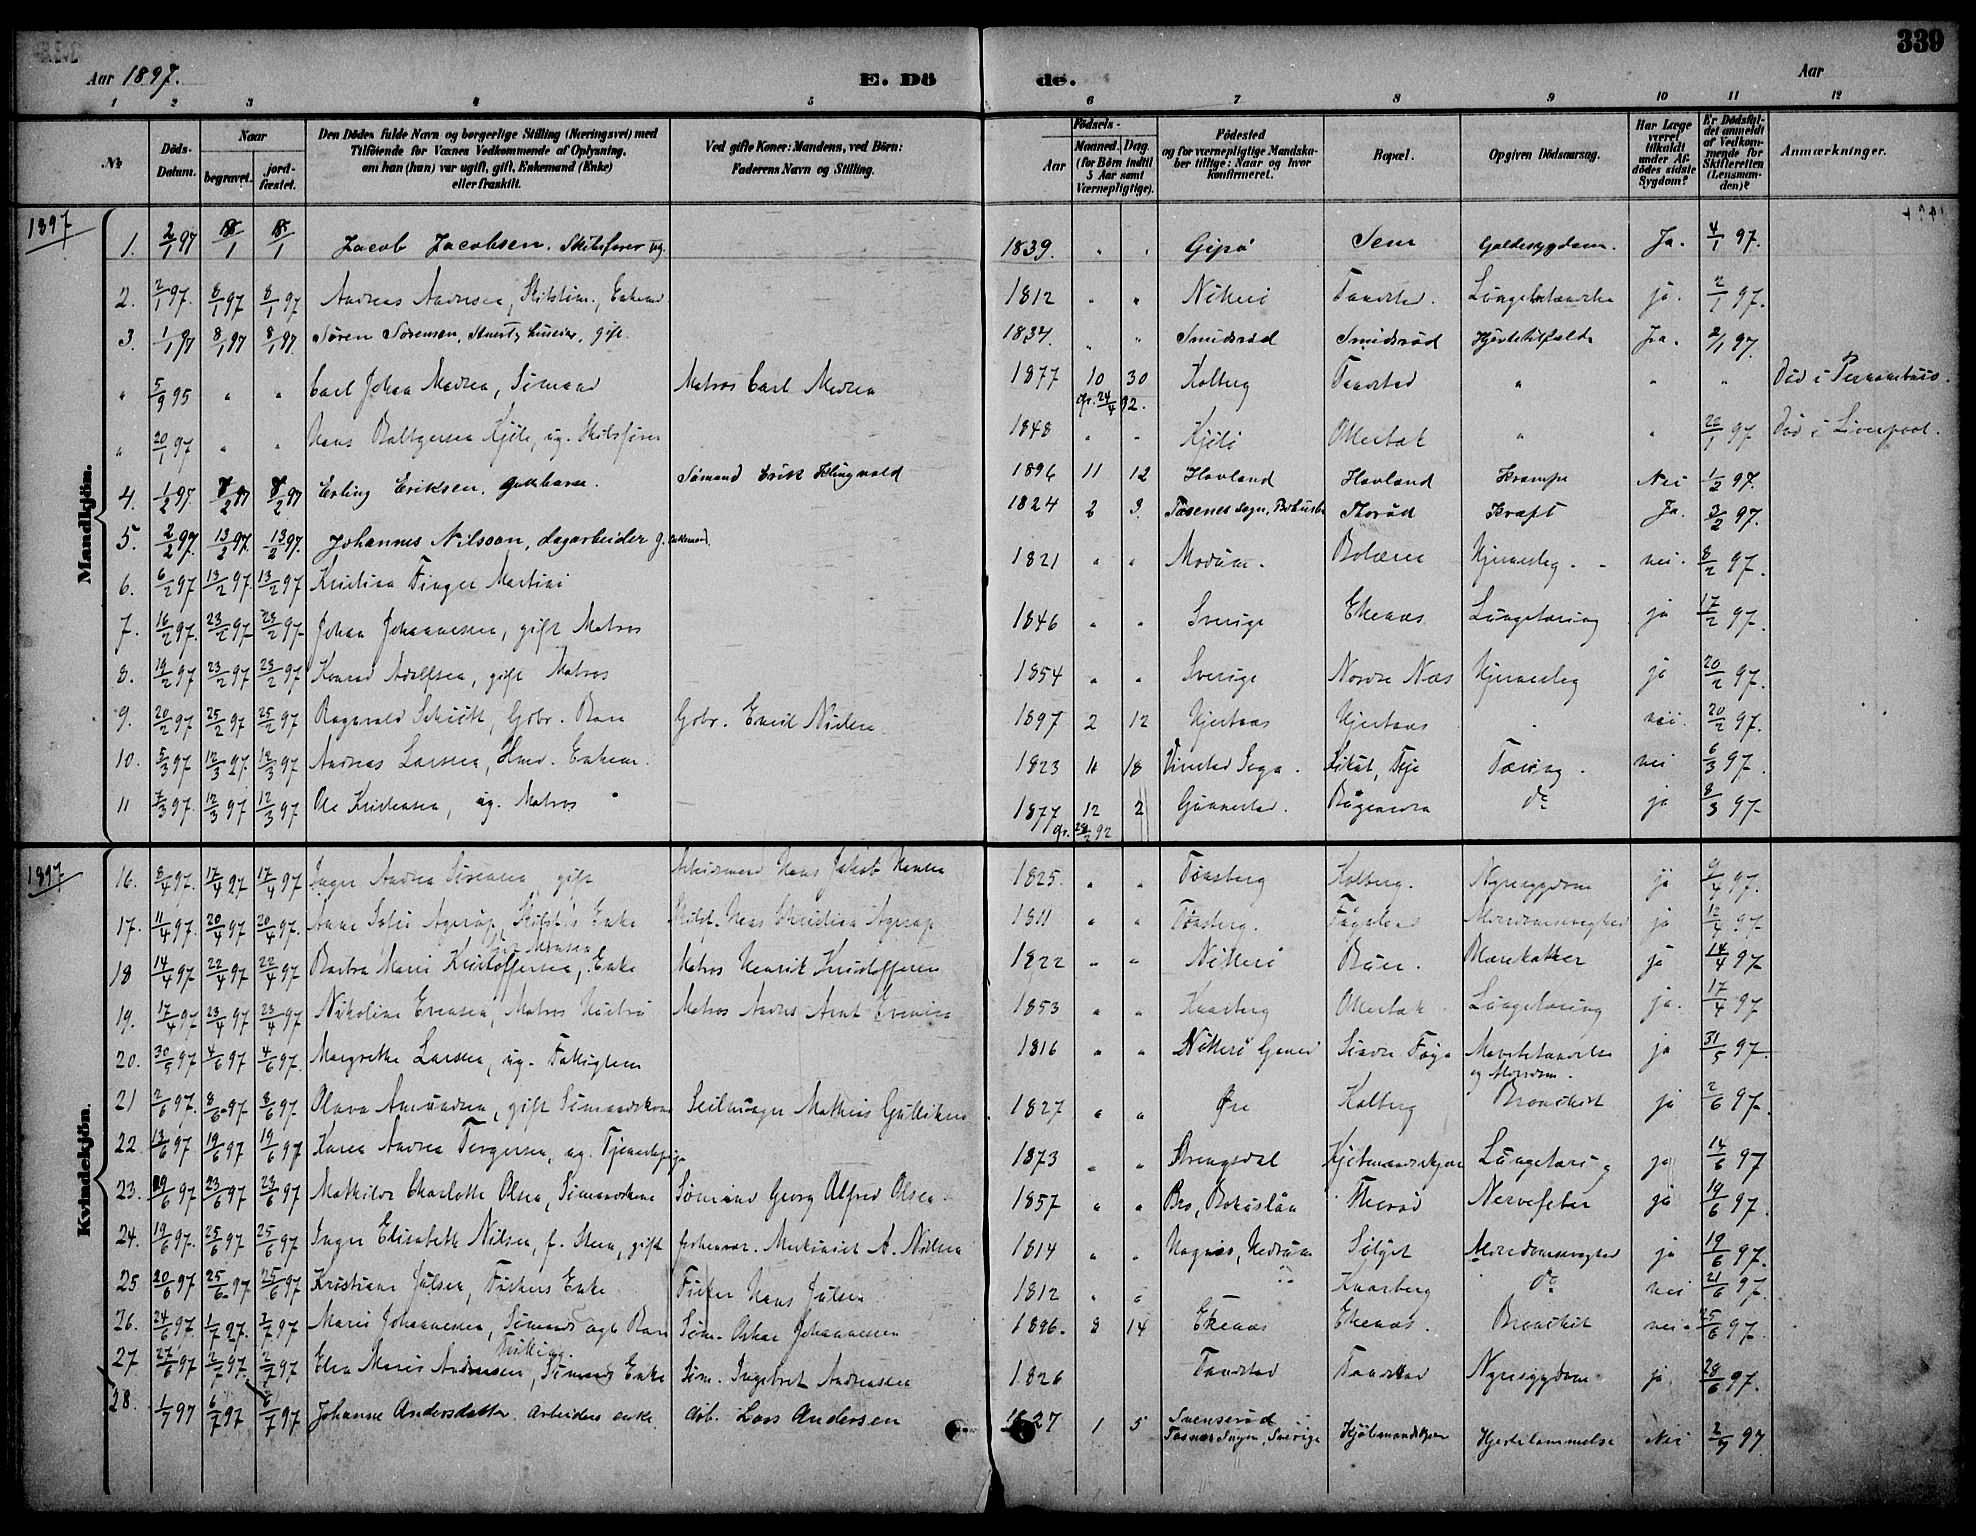 339
Aar 1897. E. Dö de. Aar
1 2 3 4 5 6 7 8 9 10 11 12
No Döds-Datum. Naar begravet. jord-fæstet. Den Dödes fulde Navn og borgerlige Stilling (Næringsvei) med Tilföiende for Voxnes Vedkommende af Oplysning, om han (hun) var ugift, gift, Enkemand (Enke) eller fraskilt. Ved gifte Koner: Mandens, ved Börn: Faderens Navn og Stilling. Födsels- Aar Maaned. Dag. (for Börn indtil 5 Aar samt Værnepligtige). Födested og for værnepligtige Mandskaber tillige: Naar og hvor konfirmeret. Bopæl. Opgiven Dödsaarsag. Har Læge været tilkaldt under Afdödes sidste Sygdom? Er Dödsfaldet anmeldt af Vedkommende for Skifteretten (Lensmanden)? Anmærkninger.
1897
Mandkjön.
1. 2/1 97 Jacob Jacobsen. Skibsfører ug. 1839. " " Gipø Sem Galdesygdom. Ja. 4/1 97.
2. 2/1 97. 8/1 97 8/1 97 Andreas Andresen, Skibstim., Enkem 1812 " " Nötterö Tandstad. Lungebetændelse ja. 2/1 97.
3. 1/1 97 8/1 97 8/1 97. Søren Sørensen, gift. 1834. " " Smidsrød Smidsrød Hjertetilfælde Ja. 2/1 97.
" 5/9 95 " " Carl Johan Madsen, Sömand Matros Carl Madsen 1877 10 30 Kolberg Tandstad " " " Död i Pernambuco.
24/4 92.
" 20/1 97 " " Hans Baltzersen Kjöle, ug. Skibsförer 1848 " " Kjöle Ollerbak " " 22/1 97 Död i Liverpool.
4. 1/2 97. 8/2 97 8/2 97 Erling Eriksen. Sømand Erik Ellingvald 1896 11 12 Hovland Hovland Krampe Nei 1/2 97.
5. 2/2 97. 13/2 97. 13/2 97. Johannes Nilsson, dagarbeider g. 1824 2 3. Tosenes Sogn, Torød Kræft Ja. 3/2 97.
6. 6/2 97 13/2 97. 13/2 97 Kristian Finger Martini 1821 " " Modum. Bolæren Hjerneslag. nei. 8/2 97.
7. 16/2 97. 23/2 97 23/2 97. Johan Johannesen, gift Matros 1846 " " Sverige Ekenæs Lungetæring ja 17/2 97.
8. 19/2 97 23/2 97 23/2 97 Konrad Adolfsen, gift Matros 1854 " " Sverige Nordre Næs Hjerneslag ja 20/2 97.
9. 20/2 97 25/2 97 25/2 97 Ragnvald Schiött, Gbr. Barn Gbr. Emil Nielsen 1897 2 12 Hjertnæs Hjertnæs " nei. 20/2 97.
10. 5/3 97 12/3 97. 12/3 97 Andreas Larsen, Hmd. Enkem. 1823 11 18 Vivestad Sogn. Kikut, Teie Tæring. nei 6/3 97.
11 7/3 97. 12/3 97 12/3 97 Ole Kristensen, ug. Matros 1877 12 2 Gunnestad. do ja 8/3 97
92
1897
Kvindekjön.
16. 8/4 97. 17/4 97 17/4 97 Inger Andrea Sörensen, gift Arbeidsmand Hans Jakob Hansen 1825. " " Tönsberg Kolberg. Nyresygdom ja 9/4 97.
17. 11/4 97 20/4 97 20/4 97. Anne Sofie Agerup, Skibst.s Enke Skibst. Hans Christian Agerup 1811 " " Tönsberg. Fögeland Alderdomssvaghed ja 12/4 97
18 14/4 97 22/4 97 22/4 97 Barbra Marie Kristoffersen, Enke Matros Henrik Kristoffersen 1822 " " Nötterö Buer. Blærekatarr ja 14/4 97
19. 17/4 97 23/4 97 23/4 97 Nikoline Evensen, Matros Hustru Matros Anders Arnt Evensen 1853 " " Knarberg Ollerbak Lungetæring ja. 17/4 97
20. 30/5 97 4/6 97 4/6 97. Margrethe Larsen, ug. Fattiglem 1816 " " Nötterö Söndre Föyn Mavebetændelse og Alderdom. ja 31/5 97.
21 2/6 97. 8/6 97 8/6 97. Olava Amundsen, gift Sömandskone Seilmager Mathias Gulliksen 1827 " " Öre Kolberg Bronchit ja 2/6 97.
22. 13/6 97 19/6 97 19/6 97 Karen Andrea Torgersen, ug. Tjenestepige 1873 " " Strengsdal Kjöbmandskjær Lungetæring ja 14/6 97
23. 19/6 97 23/6 97 23/6 97 Mathilde Charlotte Olsen, Sömandskone Sömand Georg Alfred Olsen 1857 " " Bro, Bohuslän Thorød Nervefeber ja 19/6 97.
24. 19/6 97. 25/6 97 25/6 97 Inger Elisabeth Nilsen, f. Steen, gift A. Nilsen 1814 " " Hognes, Hedrum Solgt Alderdomssvaghed ja 19/6 97.
25 20/6 97 25/6 97 25/6 97 Kristiane Julsen, Fiskers Enke. Fisker Hans Julsen 1812 " " " Knarberg do nei 21/6 97.
26. 24/6 97. 1/7 97. 2/7 97 Marie Johannesen, Sömands ægte Barn Söm. Oskar Johannesen 1896. 8 14 Ekenæs Ekenæs. Bronchit nei. 25/6 97.
Tvilling.
27 27/6 97 2/7 97. 2/7 97 Elen Marie Andreassen, Sömands Enke Söm. Ingebret Andreassen 1826 Tandstad Tandstad Nyresygdom ja 28/6 97.
28. 1/7 97 6/7 97 6/7 97 Johanne Andersdatter. Arbeiders enke. Arb. Lars Andersen 1827 1 5 Svenserød Tosnes Sogn, Sverige Kjöbmandskjær Hjertelammelse Nei 2/7 97